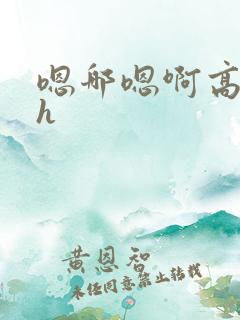 嗯那嗯啊高
h
黄恩智
未经同意禁止转载